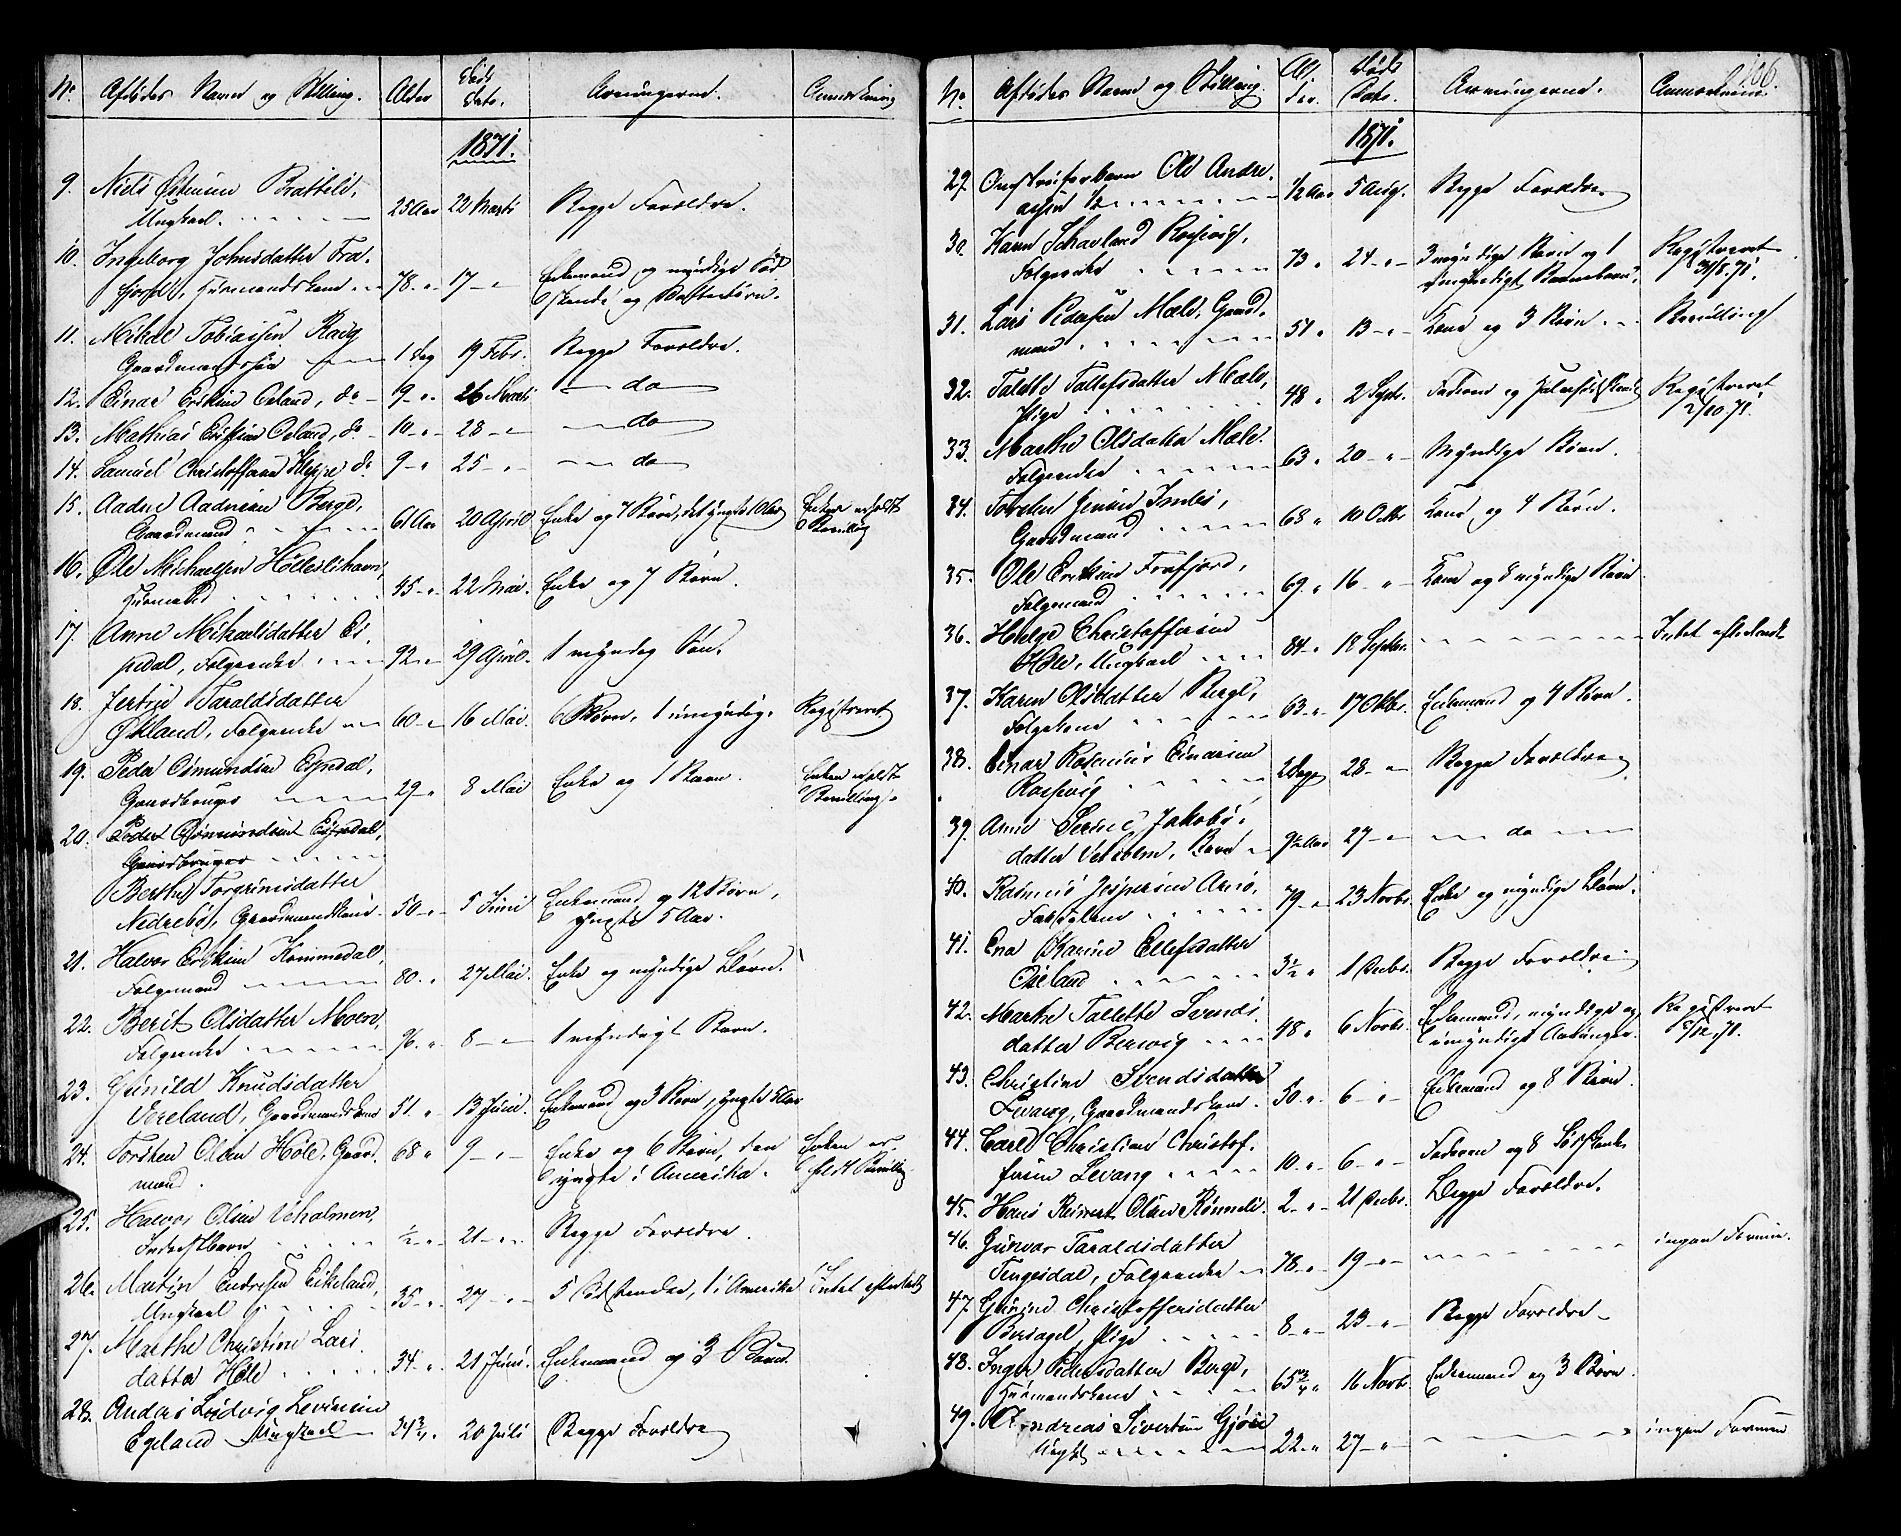 No. Afdødes Navn og Stilling. Alder Døds Dato. Arvingerne. Anmærkning
1871.
9. Niels Osmunsen Brattelid,
Ungkarl. 25 Aar 22 Marts Begge Forældre.
10. Ingeborg Johnsdatter Fra-
fjord, Huusmandskone 78 " 17 - " Enkemand og myndige Sød-
skende og Søsterbørn.
11. Mikal Tobiassen Røeg
Gaardmandssøn 1 Dag 19 Febr. Begge Forældre.
12. Einar Eriksen Oeland, do - 9 - " 26 Marts - do -
13. Mathias Eriksen Oeland, do - 10 - " 28 - " - do -
14. Samuel Christoffersen Kleppe do 9 - " 25 - " - do -
15. Aadne Aadnesen Berge,
Gaardmand 61 Aar 20 April Enke og 7 Børn, det yngste 10 Aar Enken erholdt
Bevilling
16. Ole Michaelsen Hølleslihavn,
Huusmand 45 - " 22 Mai. Enke og 7 Børn.
17. Anne Mikaelsdatter Es-
pedal, Folgeenke 92 - " 29 April. 1 myndig Søn.
18. Jertrud Taraldsdatter
Økland, Folgeenke 60 - " 16 Mai. 6 Børn, 1 umyndig. Registreret
19. Peder Osmundsen Espedal,
Gaardbruger 29 - " 8 Mai Enke og 1 Barn. Enken erholdt
Bevilling.
20. Peder Osmundsen Espedal,
Gaardbruger
Berthe Torgrimsdatter
Nedrebø, Gaardmandskone. 50 - " 5 Juni Enkemand og 12 Børn,
yngste 5 Aar.
21. Halvor Eriksen Kommedal,
Folgemand 80 - " 27 Mai. Enke og myndige Børn.
22. Berit Olsdatter Moen,
Folgeenke 76 " 8 - " 1 myndigt Barn.
23. Gunild Knudsdatter
Vereland, Gaardmandskone 51 " 13 Juni. Enkemand og 3 Børn, yngste 5 Aar
24. Torsten Olsen Høle, Gaard-
mand. 68 " 9 - " Enke og 6 Børn, den
yngste i Amerika. Enken er-
holdt Bevilling
25. Halvor Olsen Veholmen,
Inderstbarn ½ - " 21 - " Begge Forældre.
26. Martin Endresen Eikeland,
Ungkarl 35 - " 27 - " 5 Sødskender, 1 i Amerika Intet efterladt
27. Marthe Christine Lars-
datter Høle 34 " 21 Juni. Enkemand og 3 Børn.
28. Anders Ludvig Levinsen
Egeland Ungkarl 24¾ " 20 Juli Begge Forældre
166.
No. Afdødes Navn og Stilling. Al-
der. Døds Dato. Arvingerne. Anmærkning
1871.
29. Ole Andre-
assen ½ Aar 5 Aug. Begge Forældre
30. Karen Schavland Rossevig,
Folgeenke 73 " 24 - " 3 myndige Børn og 1
umyndigt Barnebarn. Registreret
31/8. 71.
31. Lars Pedersen Mæle, Gaard-
mand 51 " 13 - " Kone og 3 Børn Bevilling
32. Talette Tollefsdatter Mæle,
Pige 48 " 2 Septr. Faderen og Halvsødskende Registreret
2/10 71.
33. Marthe Olsdatter Mæle.
Folgeenke 63 " 20 - " Myndige Børn.
34. Torsten Jensen Imles,
Gaardmand 68 " 10 Octbr Kone og 4 Børn.
35. Ole Eriksen Frafjord,
Folgemand 69 " 16 - " Kone og 8 myndige Børn
36. Helge Christoffersen
Høle, Ungkarl 84 - " 18 Septbr. Intet efterladt
37. Karen Olsdatter Berge,
Folgekone 63 - " 17 Oktbr. Enkemand og 4 Børn.
38. Einar Rasmus Einarsen
Rossevig 2 Dage 28 - " Begge Forældre
39. Anne Serine Jakobs-
datter Veholm, Barn 9½ Aar 27 - " - do -
40. Rasmus Jespersen Arnø,
79 - " 23 Novbr. Enke og myndige Børn.
41. Ena Karine Ellefsdatter
Eikeland 3½ " 1 Decbr. Begge Forældre
42. Marthe Tallette Svends-
datter Bersvig 48 " 6 Novbr. Enkemand, myndige og
umyndige Arvinger. Registreret
5/12. 71.
43. Christine Svendsdatter
Levang, Gaardmandskone. 50 " 6 - " Enkemand og 8 Børn.
44. Carl Christian Christof-
fersen Levang 10 - " 6 - " Faderen og 8 Sødskende
45. Hans Reinert Olsen Rønneli. 2 - " 21 Decbr. Begge Forældre.
46. Gunvor Taraldsdatter
Tengesdal, Folgeenke 78 - " 19 - " ingen Formue.
47. Gurine Christoffersdatter
Bersagel, Pige 8 - " 23 - " Begge Forældre
48. Inger Pedersdatter Berge,
Huusmandskone 65 " 16 Novbr. Enkemand og 3 Børn.
49. Andreas Sivertsen Gjøse
Ungk. 22 - " 27 - " ingen Formue